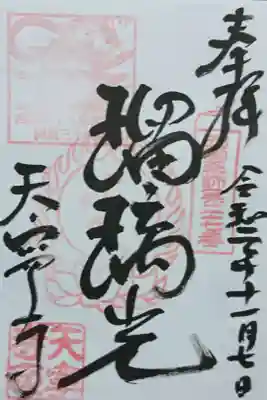 奉拝
令和二年十一月七日
瑠璃光
天寧寺